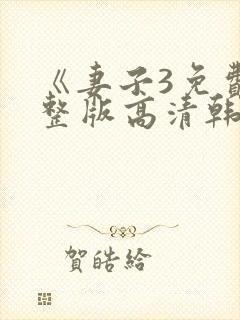 《妻子3免費
整版高清韩
賀皓給